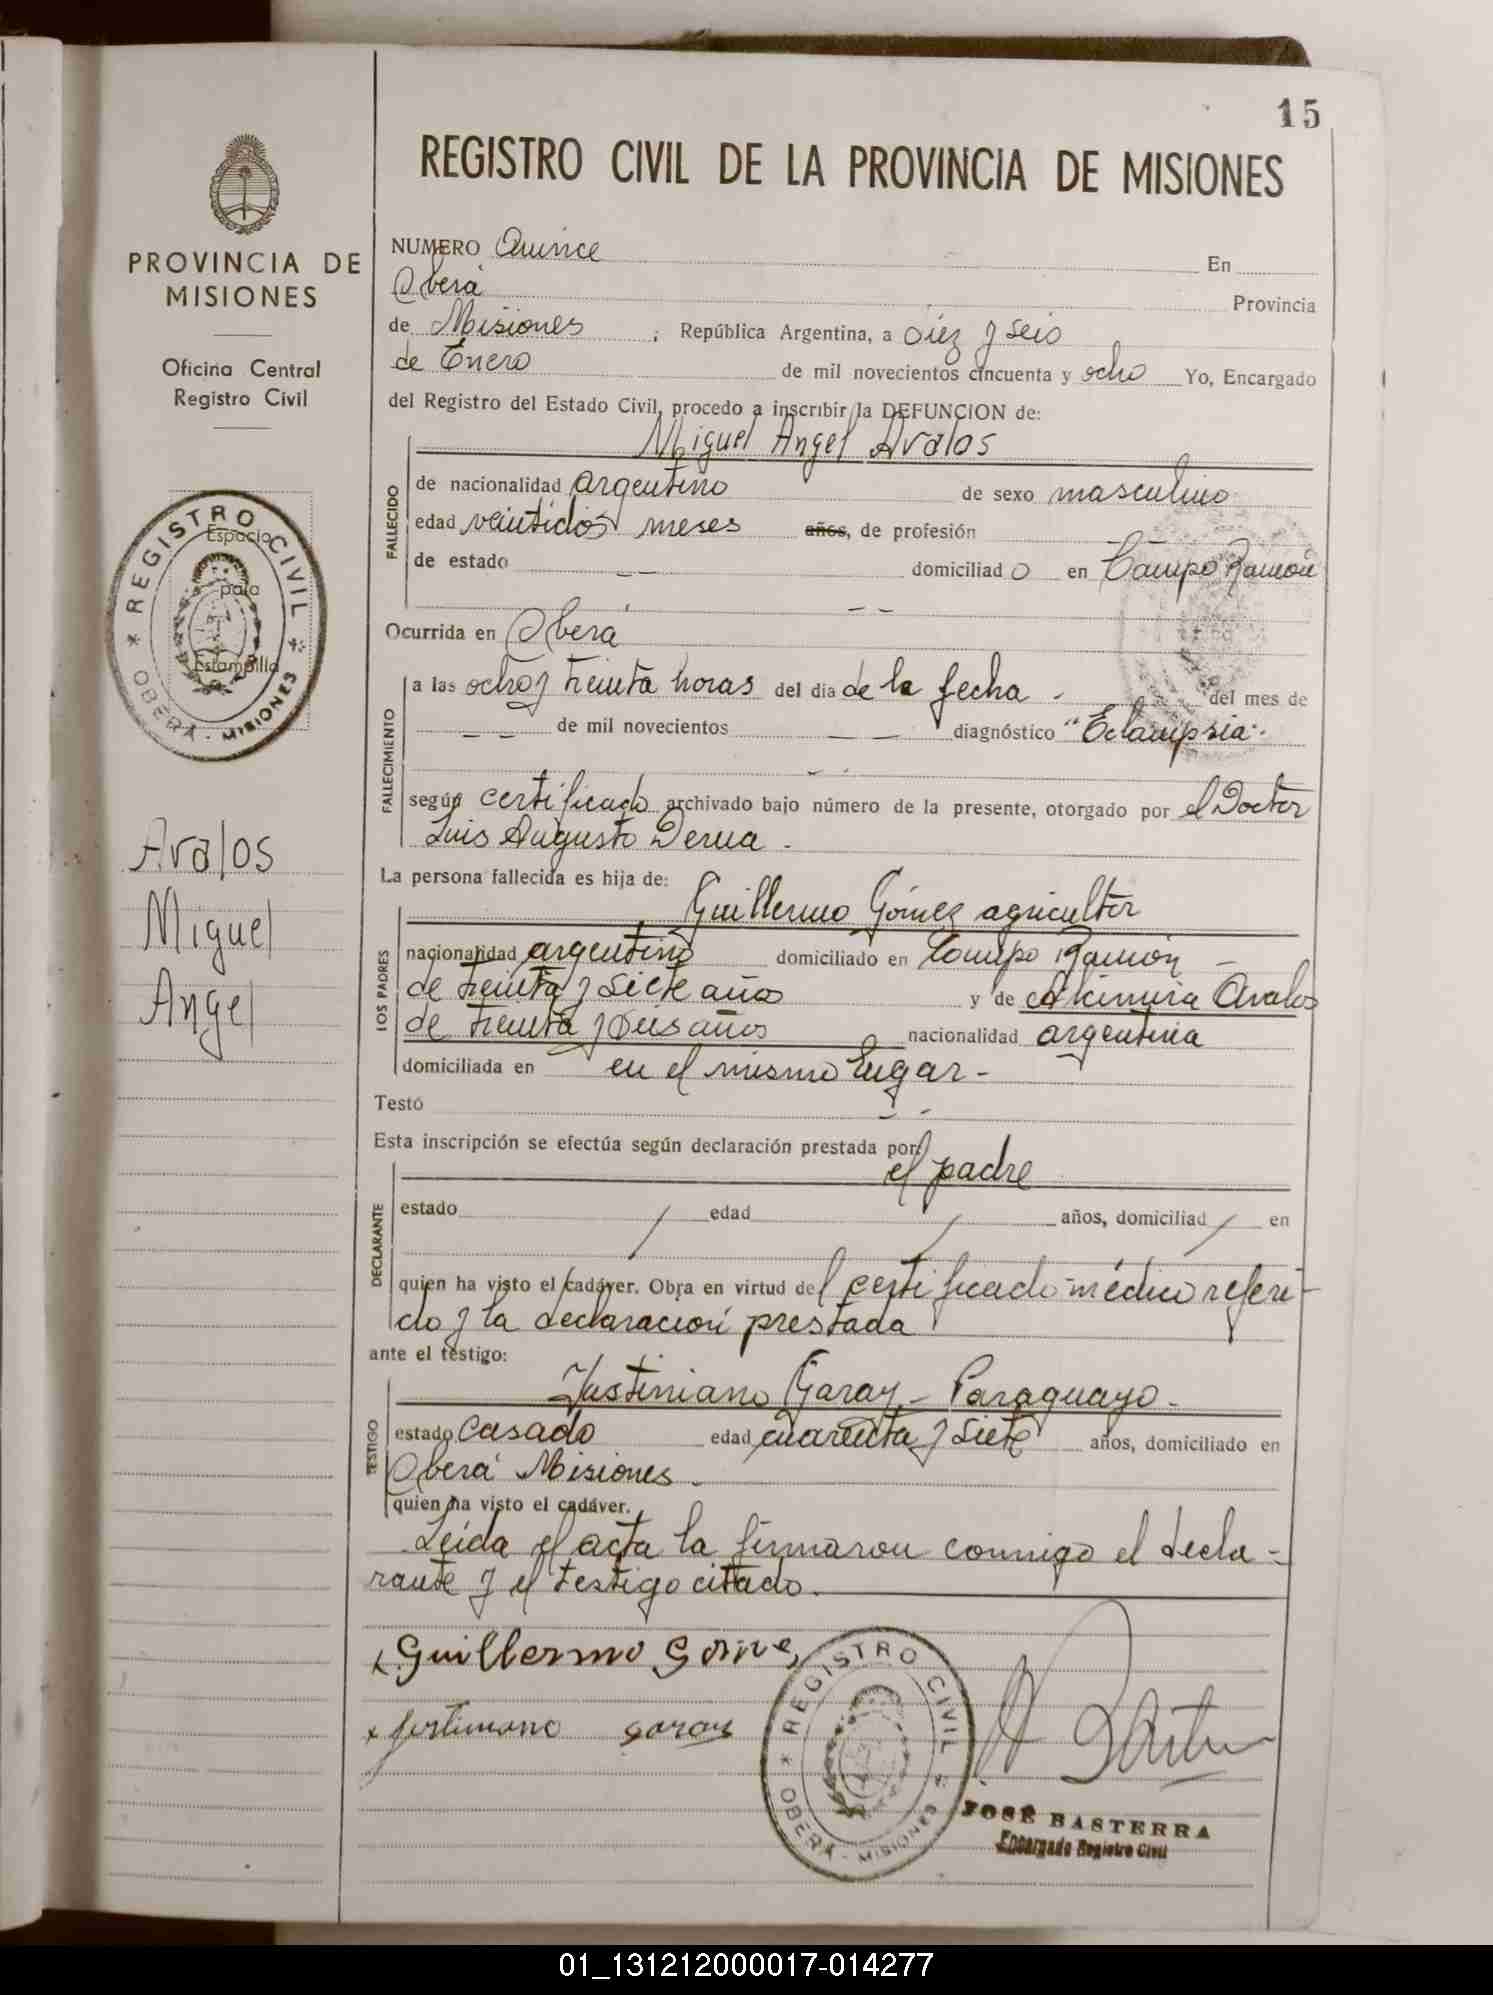 15
REGISTRO CIVIL DE LA PROVINCIA DE MISIONES
PROVINCIA DE
MISIONES
Oficina Central
Registro Civil
REGISTRO CIVIL
Espacio
para
Estampilla
* OBERÁ - MISIONES *
Avalos
Miguel
Angel
NUMERO Quince En
Oberá Provincia
de Misiones ; República Argentina, a diez y seis
de Enero de mil novecientos cincuenta y ocho Yo, Encargado
del Registro del Estado Civil, procedo a inscribir la DEFUNCION de:
Miguel Angel Avalos
FALLECIDO
de nacionalidad argentino de sexo masculino
edad veintidos meses años, de profesión
de estado — — domiciliado en Campo Ramón
— —
Ocurrida en Oberá
FALLECIMIENTO
a las ocho y treinta horas del dia de la fecha - del mes de
— — de mil novecientos — — diagnóstico "Eclampsia".
según certificado archivado bajo número de la presente, otorgado por el Doctor
Luis Augusto Derna -
La persona fallecida es hija de:
LOS PADRES
Guillermo Gómez agricultor
nacionalidad argentino domiciliado en Campo Ramón -
de treinta y siete años y de Alcimira Avalos
de treinta y seis años nacionalidad argentina
domiciliada en en el mismo lugar -
Testó - -
Esta inscripción se efectúa según declaración prestada por:
DECLARANTE
el padre
estado / edad / años, domiciliad / en
quien ha visto el cadáver. Obra en virtud del certificado médico referi-
do y la declaración prestada
ante el testigo:
TESTIGO
Justiniano Garay - Paraguayo -
estado casado edad cuarenta y siete años, domiciliado en
Oberá Misiones -
quien ha visto el cadáver.
Leída el acta la firmaron conmigo el decla-
rante y el testigo citado.
x Guillermo Gome
REGISTRO CIVIL
* OBERÁ - MISIONES *
x Justiniano garay
JOSÉ BASTERRA
Encargado Registro Civil
01_131212000017-014277